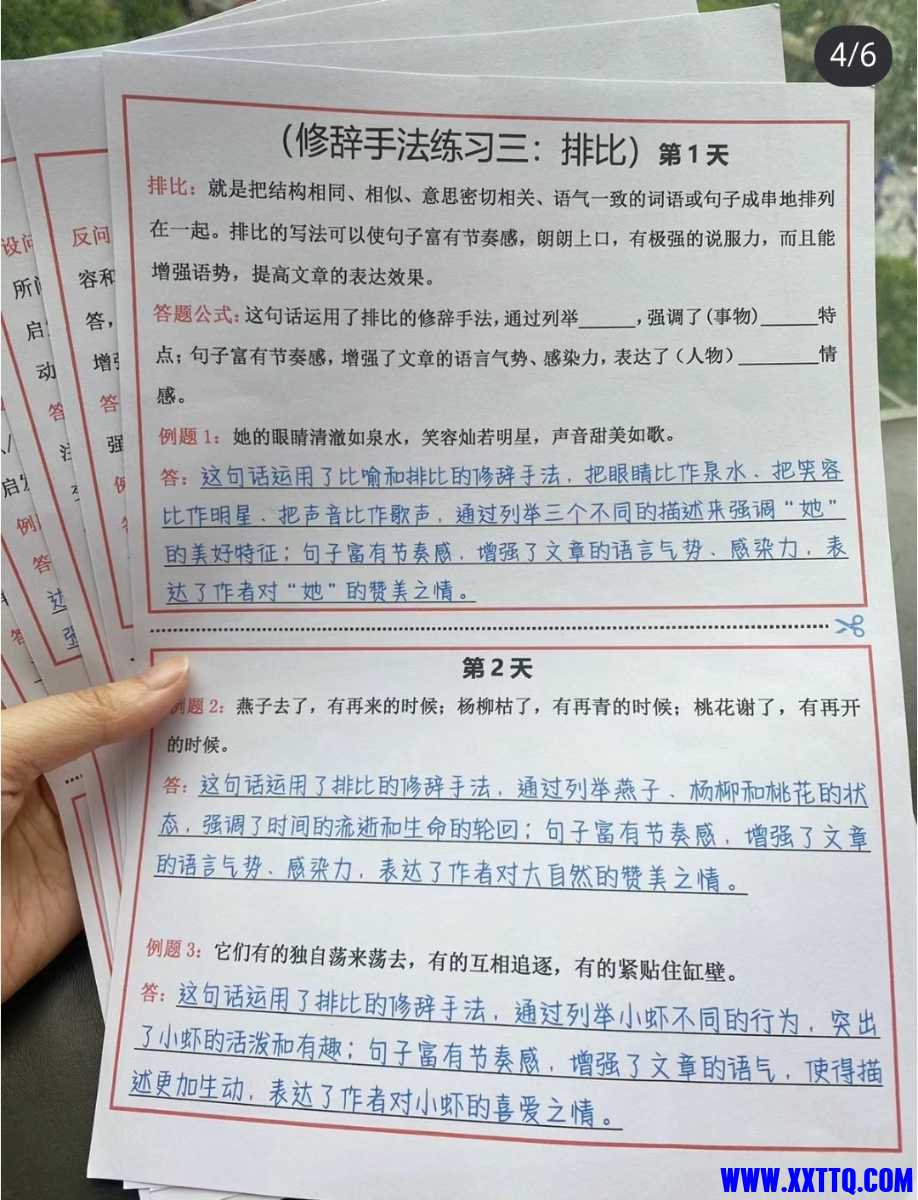 4/6
(修辞手法练习三：排比) 第1天
排比：就是把结构相同、相似、意思密切相关、语气一致的词语或句子成串地排列
在一起。排比的写法可以使句子富有节奏感，朗朗上口，有极强的说服力，而且能
增强语势，提高文章的表达效果。
答题公式：这句话运用了排比的修辞手法，通过列举______，强调了(事物)______特
点；句子富有节奏感，增强了文章的语言气势、感染力，表达了（人物）________情
感。
例题1：她的眼睛清澈如泉水，笑容灿若明星，声音甜美如歌。
答：这句话运用了比喻和排比的修辞手法，把眼睛比作泉水、把笑容
比作明星、把声音比作歌声，通过列举三个不同的描述来强调“她”
的美好特征；句子富有节奏感，增强了文章的语言气势、感染力，表
达了作者对“她”的赞美之情。
第2天
例题2：燕子去了，有再来的时候；杨柳枯了，有再青的时候；桃花谢了，有再开
的时候。
答：这句话运用了排比的修辞手法，通过列举燕子、杨柳和桃花的状
态，强调了时间的流逝和生命的轮回；句子富有节奏感，增强了文章
的语言气势、感染力，表达了作者对大自然的赞美之情。
例题3：它们有的独自荡来荡去，有的互相追逐，有的紧贴住缸壁。
答：这句话运用了排比的修辞手法，通过列举小虾不同的行为，突出
了小虾的活泼和有趣；句子富有节奏感，增强了文章的语气，使得描
述更加生动，表达了作者对小虾的喜爱之情。
反问
容和
答，
增强
答
强
例
设问
所
启
动
答
WWW.XXTTQ.COM